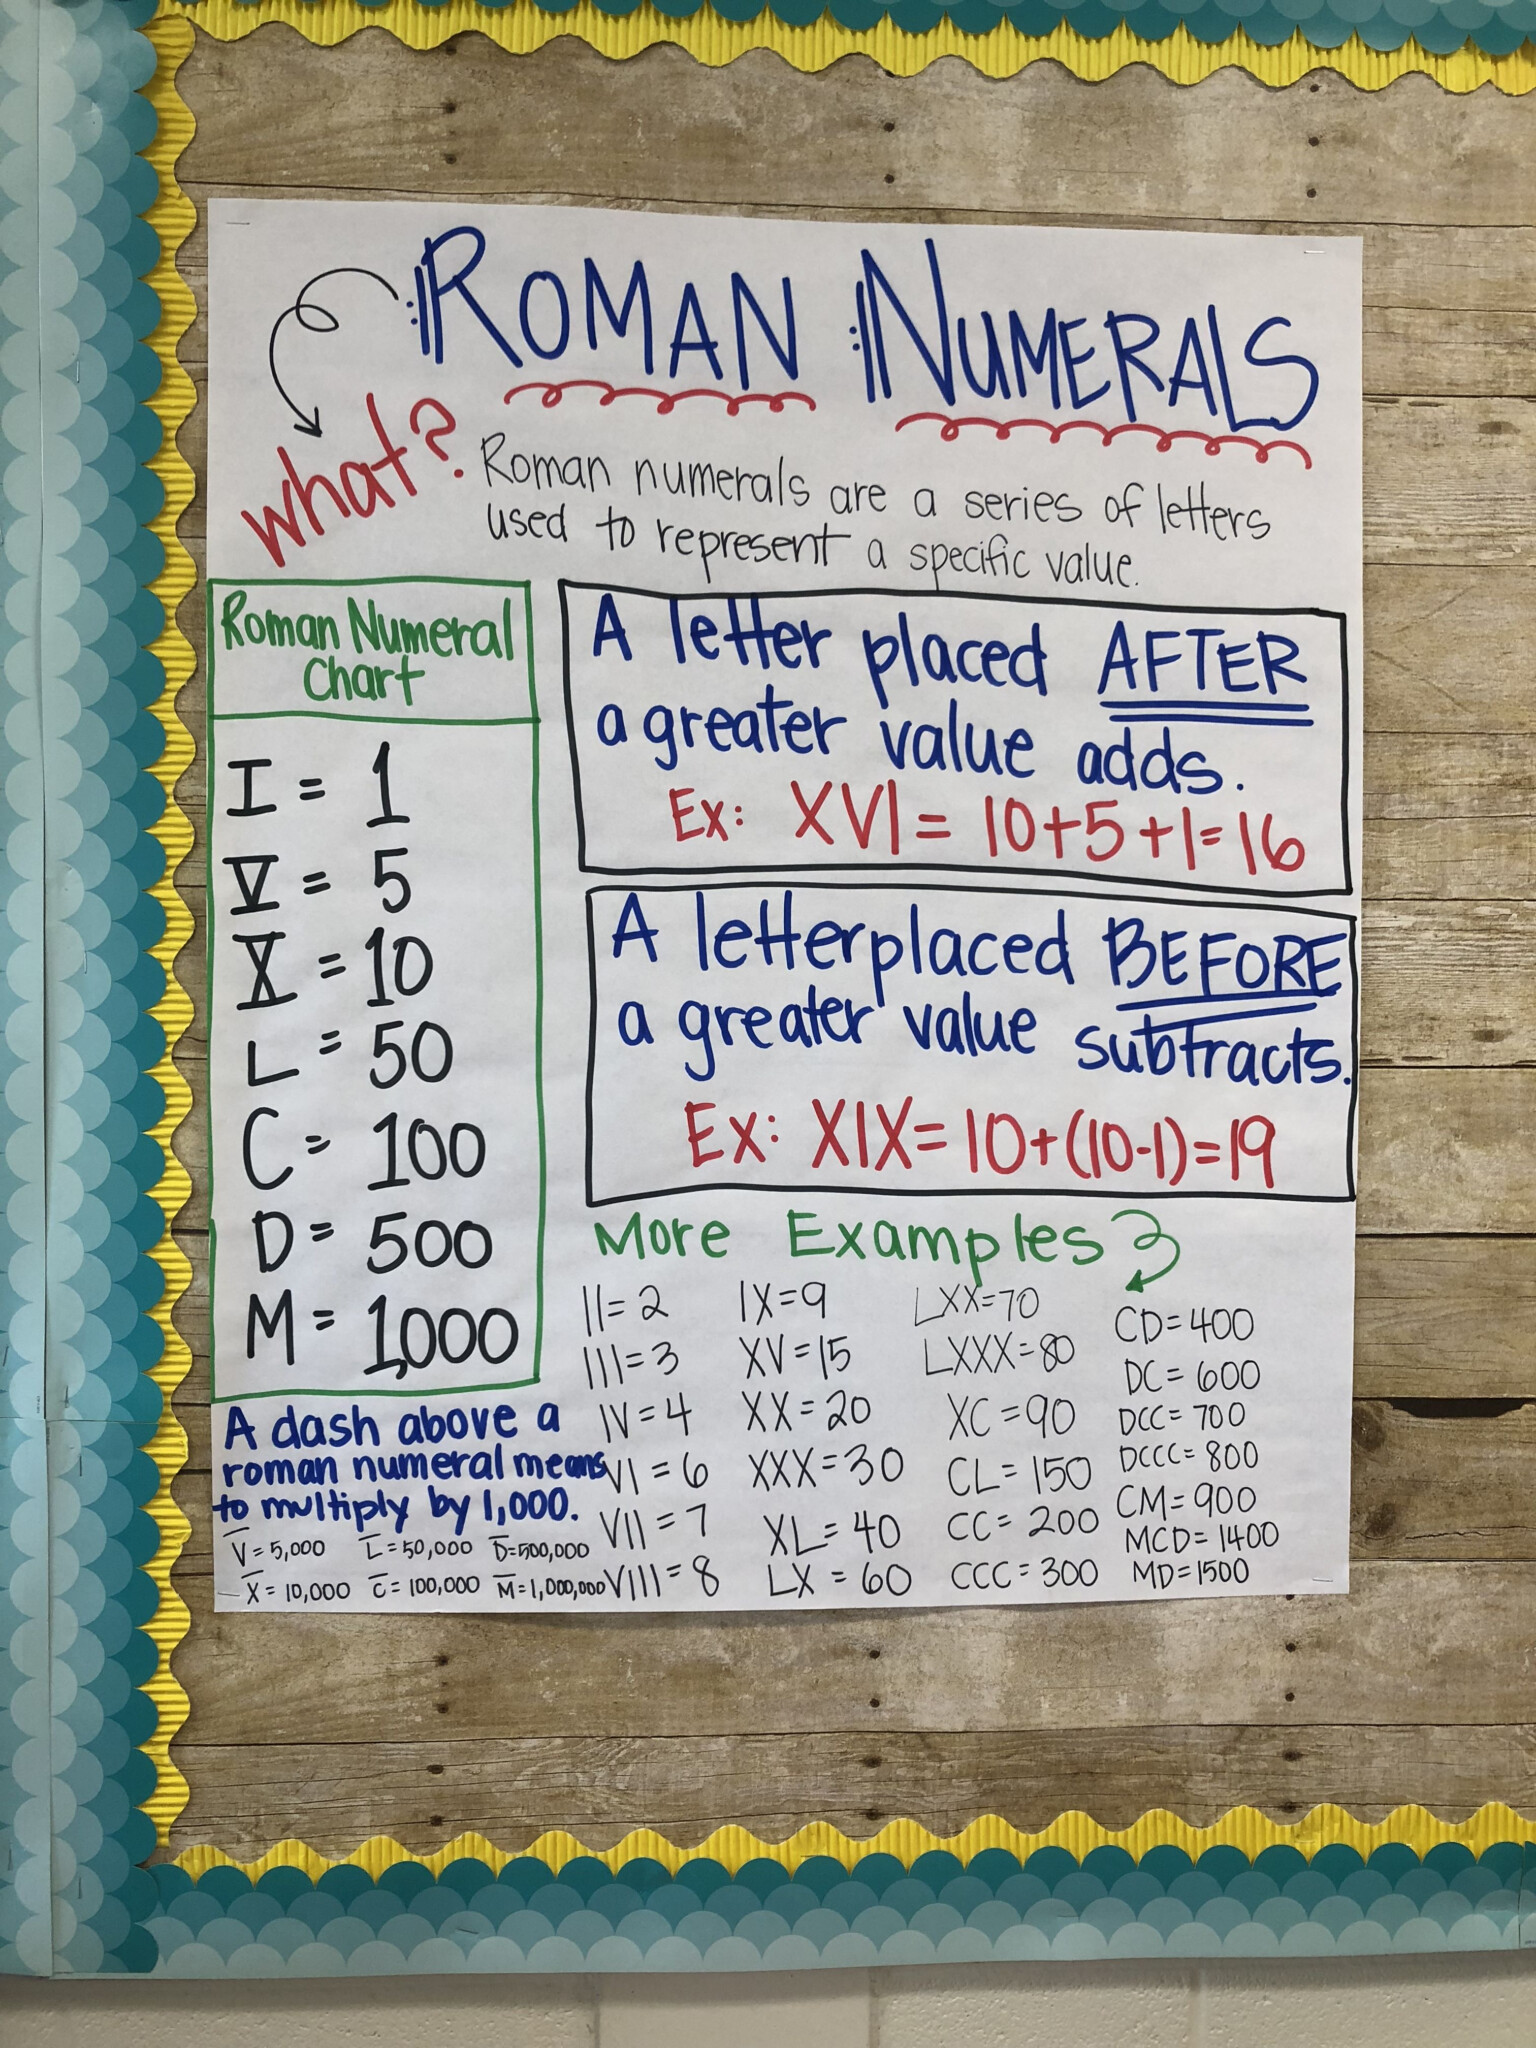 ROMAN NUMERALS
what?
Roman numerals are a series of letters
used to represent a specific value.
Roman Numeral
Chart
I = 1
V = 5
X = 10
L = 50
C = 100
D = 500
M = 1,000
A dash above a
roman numeral means
to multiply by 1,000.
V̅ = 5,000 L̅ = 50,000 D̅ = 500,000
X̅ = 10,000 C̅ = 100,000 M̅ = 1,000,000
A letter placed AFTER
a greater value adds.
Ex: XVI = 10+5+1=16
A letter placed BEFORE
a greater value subtracts.
Ex: XIX = 10+(10-1)=19
More Examples
II = 2
III = 3
IV = 4
VI = 6
VII = 7
VIII = 8
IX = 9
XV = 15
XX = 20
XXX = 30
XL = 40
LX = 60
LXX = 70
LXXX = 80
XC = 90
CL = 150
CC = 200
CCC = 300
CD = 400
DC = 600
DCC = 700
DCCC = 800
CM = 900
MCD = 1400
MD = 1500